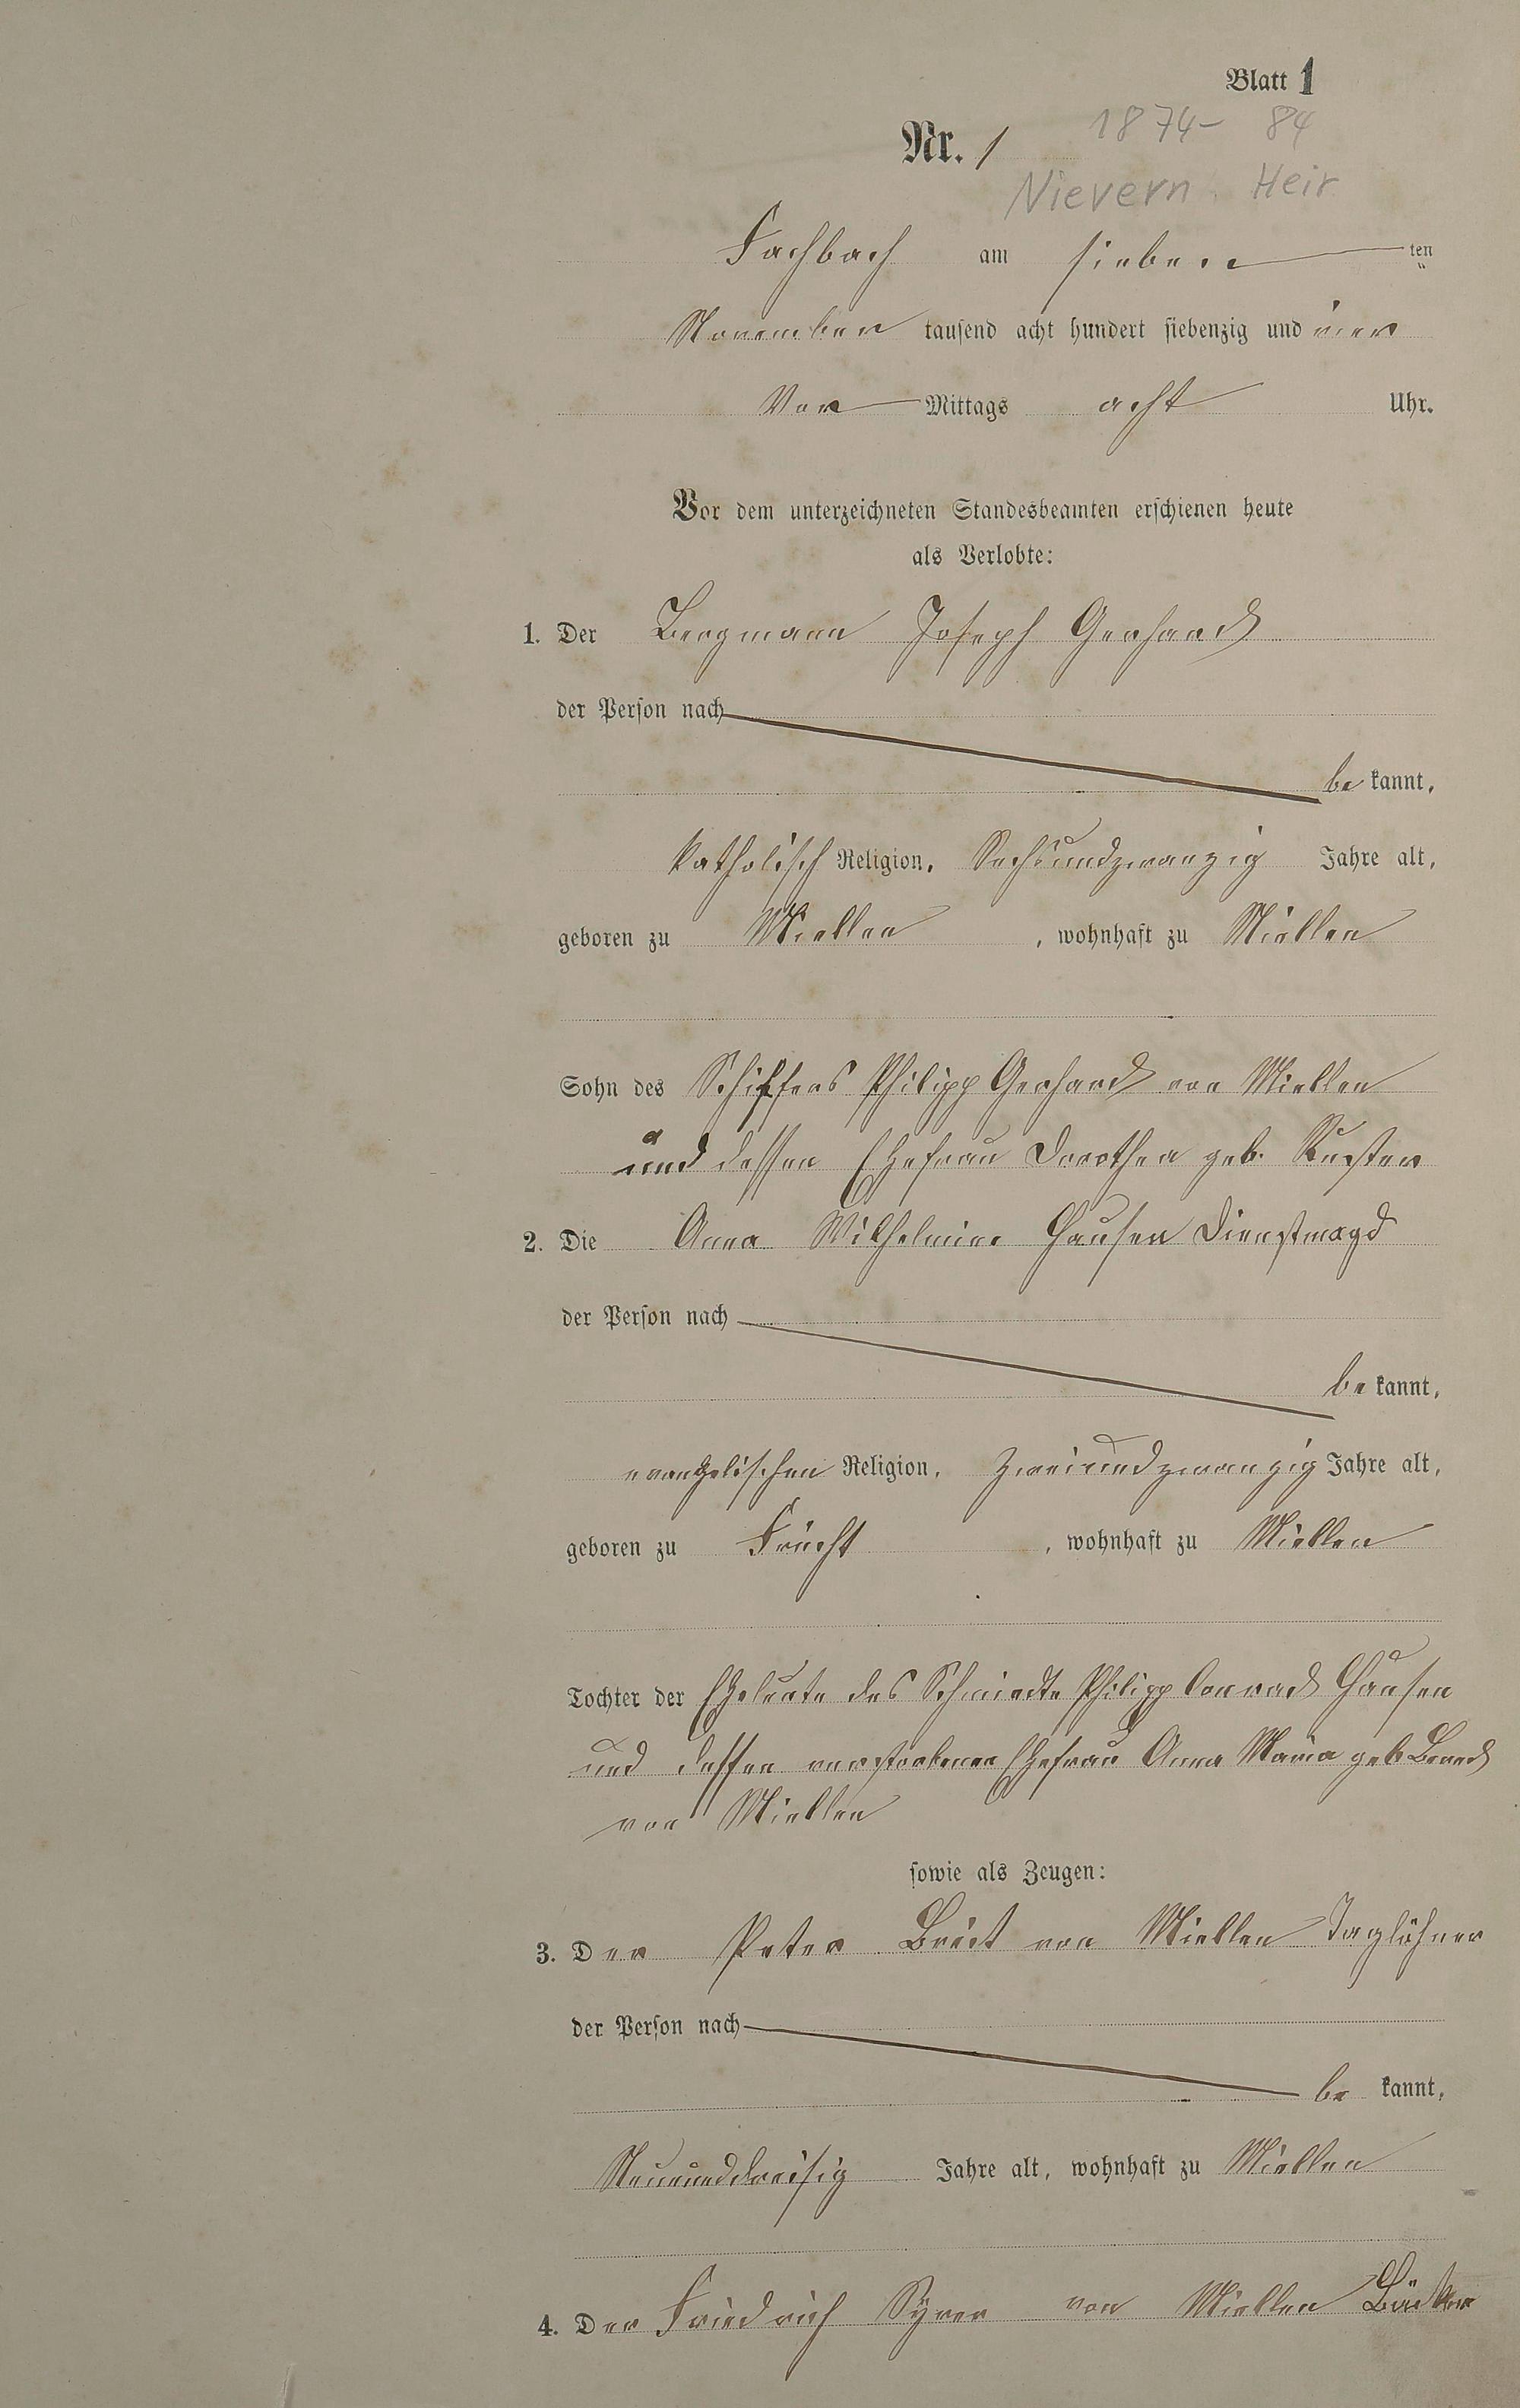 Blatt 1
1874- 84
Nr. 1
Nievern. Heir
Fachbach am sieben ten
November tausend acht hundert siebenzig und vier
Vor Mittags acht Uhr.
Vor dem unterzeichneten Standesbeamten erschienen heute
als Verlobte:
1. Der Bergmann Joseph Gerhard
der Person nach
be kannt,
katholisch Religion, Sechsundzwanzig Jahre alt,
geboren zu Miellen, wohnhaft zu Miellen
Sohn des Schiffers Philipp Gerhard von Miellen
und dessen Ehefrau Dorothea geb.
2. Die Anna Wilhelmine Hausen Dienstmagd
der Person nach
be kannt,
evangelischen Religion, zweiundzwanzig Jahre alt,
geboren zu Frücht, wohnhaft zu Miellen
Tochter der Eheleute des Schmiedte Philipp Conrad Hausen
und dessen verstorbenen Ehefrau Anna Maria geb
von Miellen
sowie als Zeugen:
3. Der Peter von Miellen Taglöhner
der Person nach
be kannt,
Neununddreisig Jahre alt, wohnhaft zu Miellen
4. Der Friedrich von Miellen